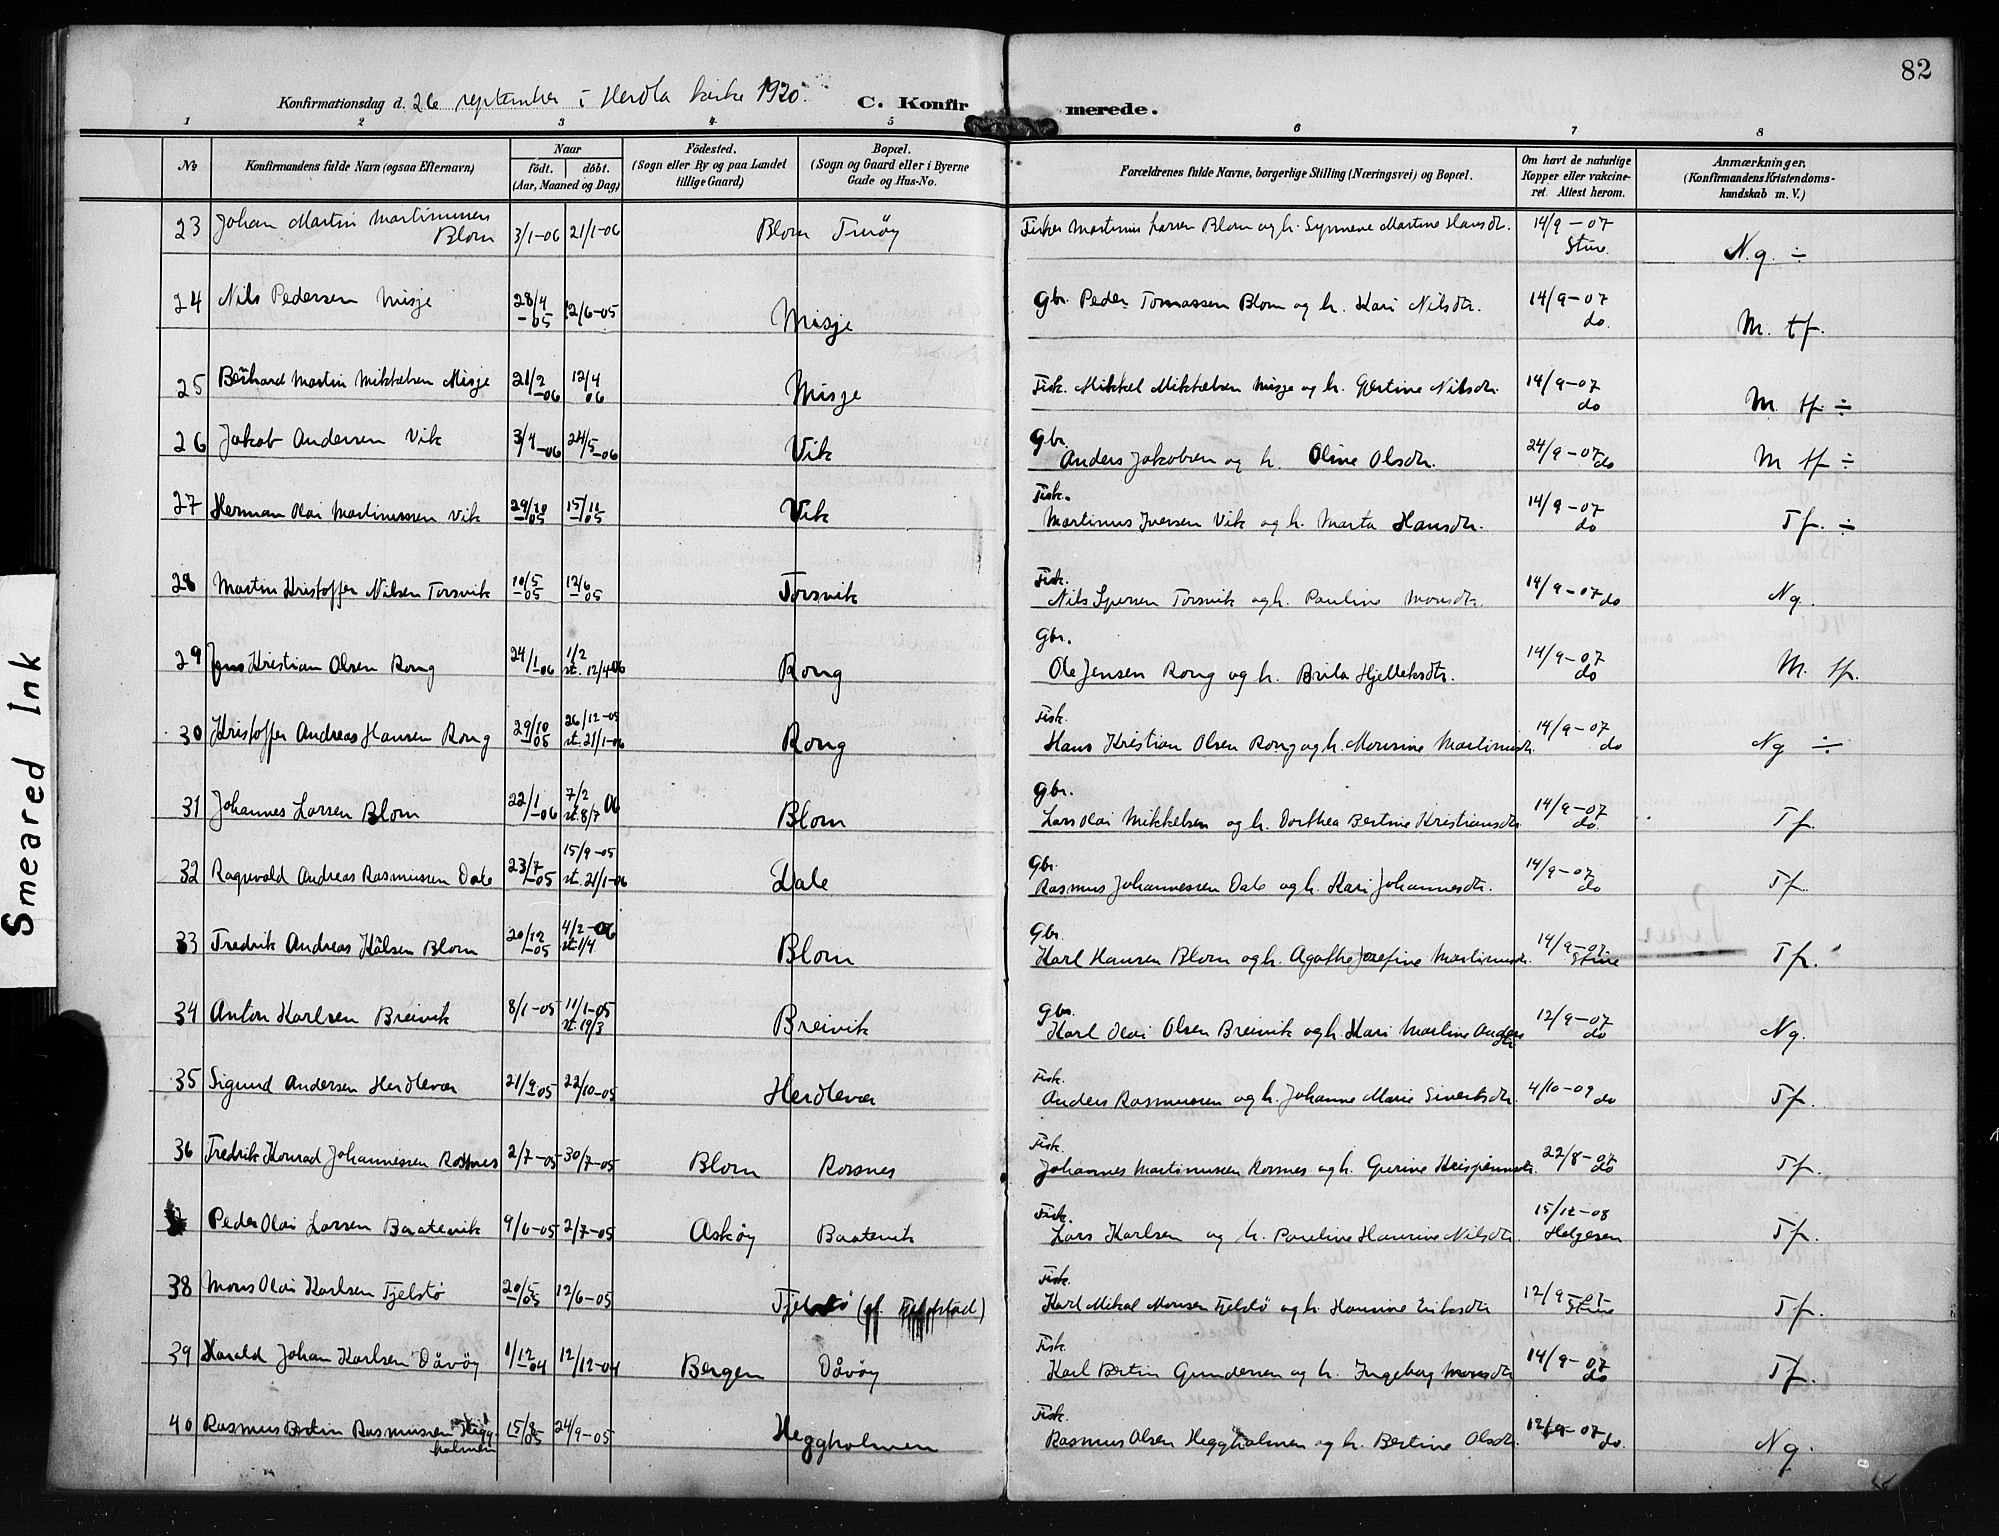 82
Konfirmationsdag d. 26 september i Herdla kirke 1920. C. Konfirmerede.
1 2 3 4 5 6 7 8
No Konfirmandens fulde Navn (ogsaa Efternavn) Naar født. døbt. (Aar, Maaned og Dag) Fødested. (Sogn eller By og paa Landet tillige Gaard) Bopæl. (Sogn og Gaard eller i Byerne Gade og Hus-No. Forældrenes fulde Navne, borgerlige Stilling (Næringsvei) og Bopæl. Om havt de naturlige Kopper eller vakcineret. Attest herom. Anmærkninger, (Konfirmandens Kristendomskundskab m. V.)
23 Johan Martin Martinussen Blom 3/1-06 21/1-06 Blom Turøy Fisker Martinus Larsen Blom og h. Synneve Martine Hansdtr. 14/9-07 Sture N.g. ÷
24 Nils Pedersen Misje 28/4-05 12/6-05 Misje Gbr. Peder Tomassen Blom og h. Kari Nilsdtr. 14/9-07 do. M. tf.
25 Bernhard Martin Mikkelsen Misje 21/2-06 12/4 06 Misje Fisk. Mikkel Mikkelsen Misje og h. Gjertine Nilsdtr. 14/9-07 do M. tf. ÷
26 Jakob Andersen Vik 3/4-06 24/5-06 Vik Gbr. Anders Jakobsen og h. Oline Olsdtr. 24/9-07 do M tf ÷
27 Herman Olai Martinussen Vik 29/10-05 15/11-05 Vik Fisk. Martinus Iversen Vik og h. Marta Hansdtr. 14/9-07 do Tf. ÷
28 Martin Kristoffer Nilsen Torsvik 10/5-05 12/6-05 Torsvik Fisk. Nils Torsvik og h. Pauline Monsdtr. 14/9-07 do Ng.
29 Jens Kristian Olsen Rong 24/1-06 1/2 st. 12/4-06 Rong Gbr. Ole Jensen Rong og h. Brita Hjelleksdtr. 14/9-07 do M. tf.
30 Kristoffer Andreas Hansen Rong 29/10-05 26/12-05 st. 21/1-06 Rong Fisk. Hans Kristian Olsen Rong og h. Monsine Martinusdtr. 14/9-07 do Ng ÷
31 Johannes Larsen Blom 22/1-06 7/2 06 st. 8/7 Blom Gbr. Lars Olai Mikkelsen og h. Dorthea Bertine Kristiansdtr. 14/9-07 do. Tf.
32 Ragnvald Andreas Rasmussen Dale 23/7-05 15/9-05 st. 21/1-06 Dale Gbr. Rasmus Johannessen Dale og h. Kari Johannesdtr. 14/9-07 do Tf.
33 Fredrik Andreas Blom 20/12-05 4/2-06 st. 1/4 Blom Gbr. Karl Hansen Blom og h. Agathe Josefine Martinusdtr. 14/9-07 Sture Tf.
34 Anton Karlsen Breivik 8/1-05 11/1-05 st. 19/3 Breivik Gbr. Karl Olai Olsen Breivik og h. Kari Martine Andersdtr 12/9-07 do Ng.
35 Sigurd Andersen Herdlevær 21/9-05 22/10-05 Herdlevær Fisk. Anders Rasmussen og h. Johanne Marie Sivertsdtr. 4/10-09 do Tf.
36 Fredrik Konrad Johannessen Rossnes 2/7-05 30/7-05 Blom Rossnes Fisk. Johannes Martinussen Rosnes og h. Gurine 22/8-07 do Tf.
Peder Olai Larsen Baatevik 9/6-05 2/7-05 Askøy Baatevik Fisk. Lars Karlsen og h. Pauline Hansine Nilsdtr. 15/12-08 Helgesen Tf.
38 Mons Olai Karlsen Fjelstø 20/5-05 12/6-05 Fjelstø Fisk. Karl Mikal Monsen Fjelstø og h. Hansine Eriksdtr 12/9-07 Sture Tf.
39 Harald Johan Karlsen Dåvøy 1/12-04 12/12-04 Bergen Dåvøy Fisk. Karl Bertin Gundersen og h. Ingeborg Monsdtr 14/9-07 do Tf.
40 Rasmus Bertin Rasmussen Heggholmen 15/8-05 24/9-05 Heggholmen Fisk. Rasmus Olsen Heggholmen og h. Bertine Olsdtr. 12/9-07 do. Ng.
Smeared Ink